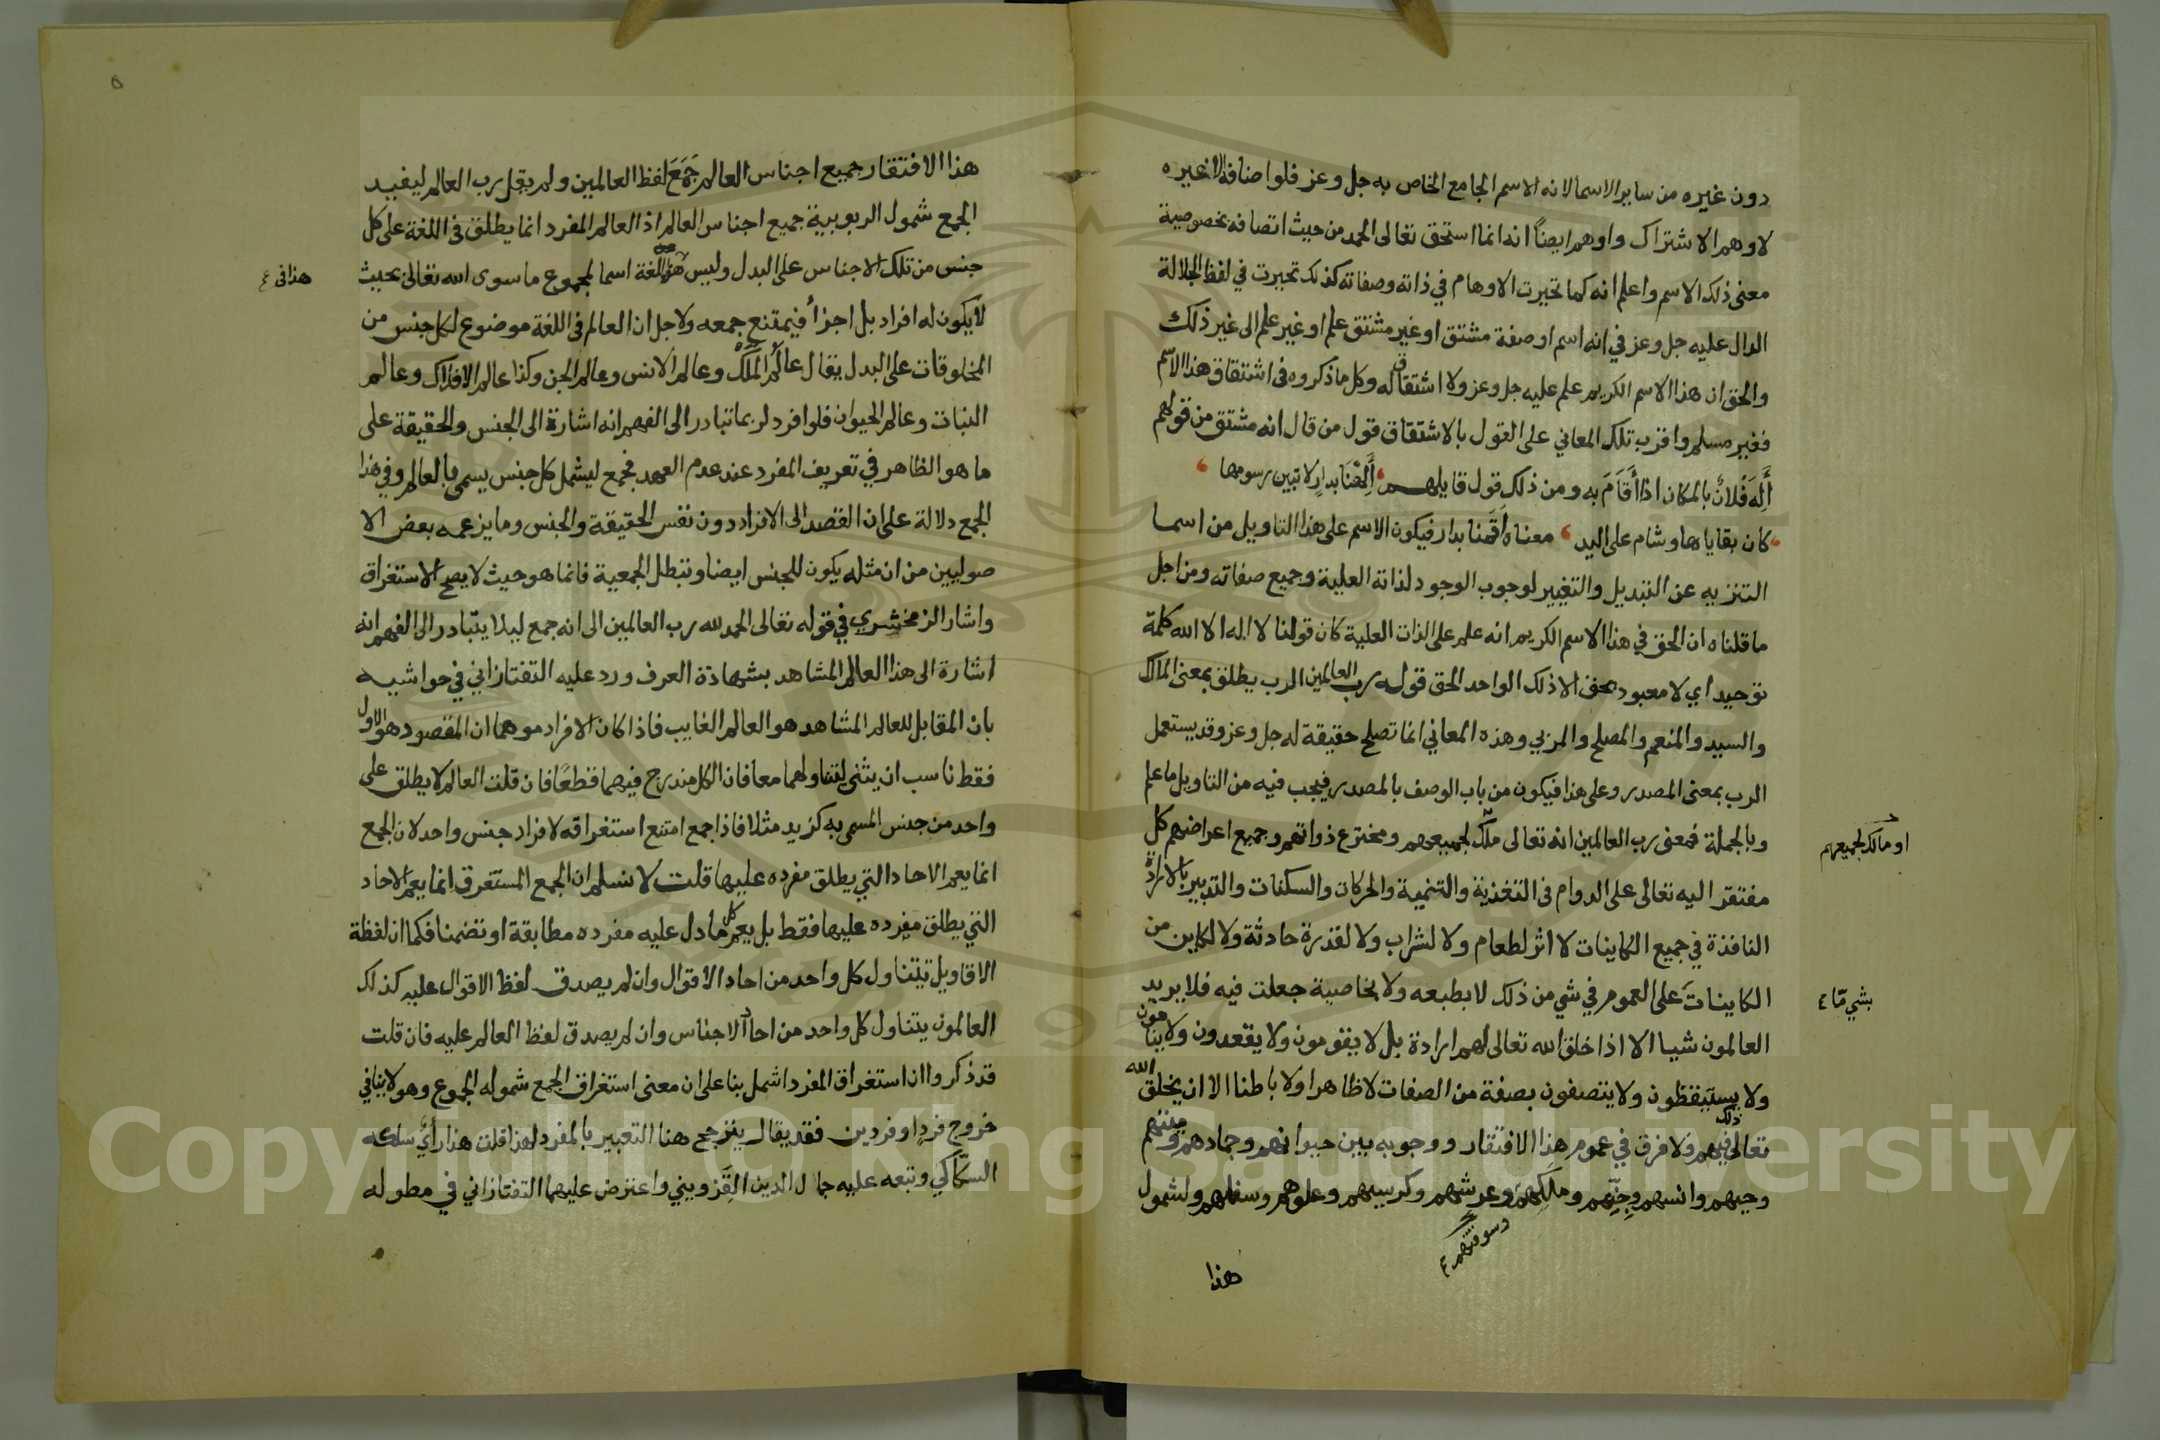 دون غيره من ساير الاسما لانه الاسم الجامع الخاص به جل وعز فلو اضافه لاغيره
لاوهم الاشتراك واوهم ايضاً انه انما استحق تعالى الحمد من حيث اتصافه بخصوصية
معنى ذلك الاسم واعلم انه كما تحيرت الاوهام في ذاته وصفاته كذلك تحيرت في لفظ الجلالة
الدال عليه جل وعز في انه اسم او صفة مشتق او غير مشتق علم او غير علم الى غير ذلك
والحق ان هذا الاسم الكريم علم عليه جل وعز ولا اشتقاق له وكل ما ذكروه في اشتقاق هذا الاسم
فغير مسلم واقرب تلك المعاني على القول بالاشتقاق قول من قال انه مشتق من قولهم
أَلِهَ فُلانٌ بالمكان اذا أَقَامَ به ومن ذلك قول قايلهم أَلِهْنَا بدارٍ لا تبين رسومها
كان بقاياها وشام على اليد معناه أقمنا بدار فيكون الاسم على هذا التاويل من اسما
التنزيه عن التبديل والتغيير لوجوب الوجود لذاته العلية وجميع صفاته ومن اجل
ما قلناه ان الحق في هذا الاسم الكريم انه علم على الذات العلية كان قولنا لا اله الا الله كلمة
توحيد اي لا معبود بحق الا ذلك الواحد الحق قوله رب العالمين الرب يطلق بمعنى المالك
والسيد والمنعم والمصلح والمربي وهذه المعاني انما تصلح حقيقة له جل وعز وقد يستعمل
الرب بمعنى المصدر وعلى هذا فيكون من باب الوصف بالمصدر فيجب فيه من التاويل ما علم
وبالجملة فمعنى رب العالمين انه تعالى ملك لجميعهم ومخترع ذواتهم وجميع اعراضهم كل
او مالك لجميعهم
مفتقر اليه تعالى على الدوام في التغذية والتنمية والحركات والسكنات والتدبير بالارادة
النافذة في جميع الكاينات لا اثر لطعام ولا لشراب ولا لقدرة حادثة ولا لكاين من
الكاينات على العموم في شي من ذلك لا بطبعه ولا بخاصية جعلت فيه فلا يريد
بشي ما ٤
العالمون شيا الا اذا خلق الله تعالى لهم ارادة بل لا يقومون ولا يقعدون ولا ينامون
ولا يستيقظون ولا يتصفون بصفة من الصفات لا ظاهرا ولا باطنا الا ان يخلق الله
تعالى ذلك فيهم ولا فرق في عموم هذا الافتقار ووجوبه بين حيوانهم وجمادهم وميتهم
وحيهم وانسهم وجنّهم وملكهم وعرشهم وكرسيهم وعلوهم وسفلهم ولشمول
وسوقتهم ٤
هذا
هذا الافتقار جميع اجناس العالم جَمَعَ لفظ العالمين ولم يقل رب العالم ليفيد
الجمع شمول الربوبية جميع اجناس العالم اذ العالم المفرد انما يطلق في اللغة على كل
جنس من تلك الاجناس على البدل وليس هو في اللغة اسما لمجموع ما سوى الله تعالى بحيث
هذا في ٤
لا يكون له افراد بل اجزأ فيمتنع جمعه ولاجل ان العالم في اللغة موضوع لكل جنس من
المخلوقات على البدل يقال عالَمُ المَلَكْ وعالم الانس وعالم الجن وكذا عالم الافلاك وعالم
النبات وعالم الحيوان فلو افرد لربما تبادر الى الفهم انه اشارة الى الجنس والحقيقة على
ما هو الظاهر في تعريف المفرد عند عدم العهد فجمع ليشمل كل جنس يسمى بالعالم وفي هذا
الجمع دلالة على ان القصد الى الافراد دون نفس الحقيقة والجنس وما يزعمه بعض الا
صوليين من ان مثله يكون للجنس ايضا وتبطل الجمعية فانما هو حيث لا يصح الاستغراق
واشار الزمخشري في قوله تعالى الحمد لله رب العالمين الى انه جمع ليلا يتبادر الى الفهم انه
اشارة الى هذا العالم المشاهد بشهادة العرف ورد عليه التفتازاني في حواشيه
بان المقابل للعالم المشاهد هو العالم الغايب فاذا كان الافراد موهما ان المقصود هو الاول
فقط ناسب ان يثنى لتناولهما معا فان الكل مندرج فيهما قطعًا فان قلت العالم لا يطلق على
واحد من جنس المسمى به كزيد مثلا فاذا جمع امتنع استغراقه لافراد جنس واحد لان الجمع
انما يعم الاحاد التي يطلق مفرده عليها قلت لا نسلم ان الجمع المستغرق انما يعم الاحاد
التي يطلق مفرده عليها فقط بل يعم كل ما دل عليه مفرده مطابقة او تضمنا فكما ان لفظة
الاقاويل تتناول كل واحد من احاد الاقوال وان لم يصدق لفظ الاقوال عليه كذلك
العالمون يتناول كل واحد من احاد الاجناس وان لم يصدق لفظ العالم عليه فان قلت
قد ذكروا ان استغراق المفرد اشمل بنا على ان معنى استغراق الجمع شموله الجموع وهو لا ينافي
خروج فرد او فردين فقد يقال يترجح هنا التعبير بالمفرد لهذا قلت هذا رأيٌ سلكه
السكاكي وتبعه عليه جلال الدين القزويني واعترض عليهما التفتازاني في مطوله